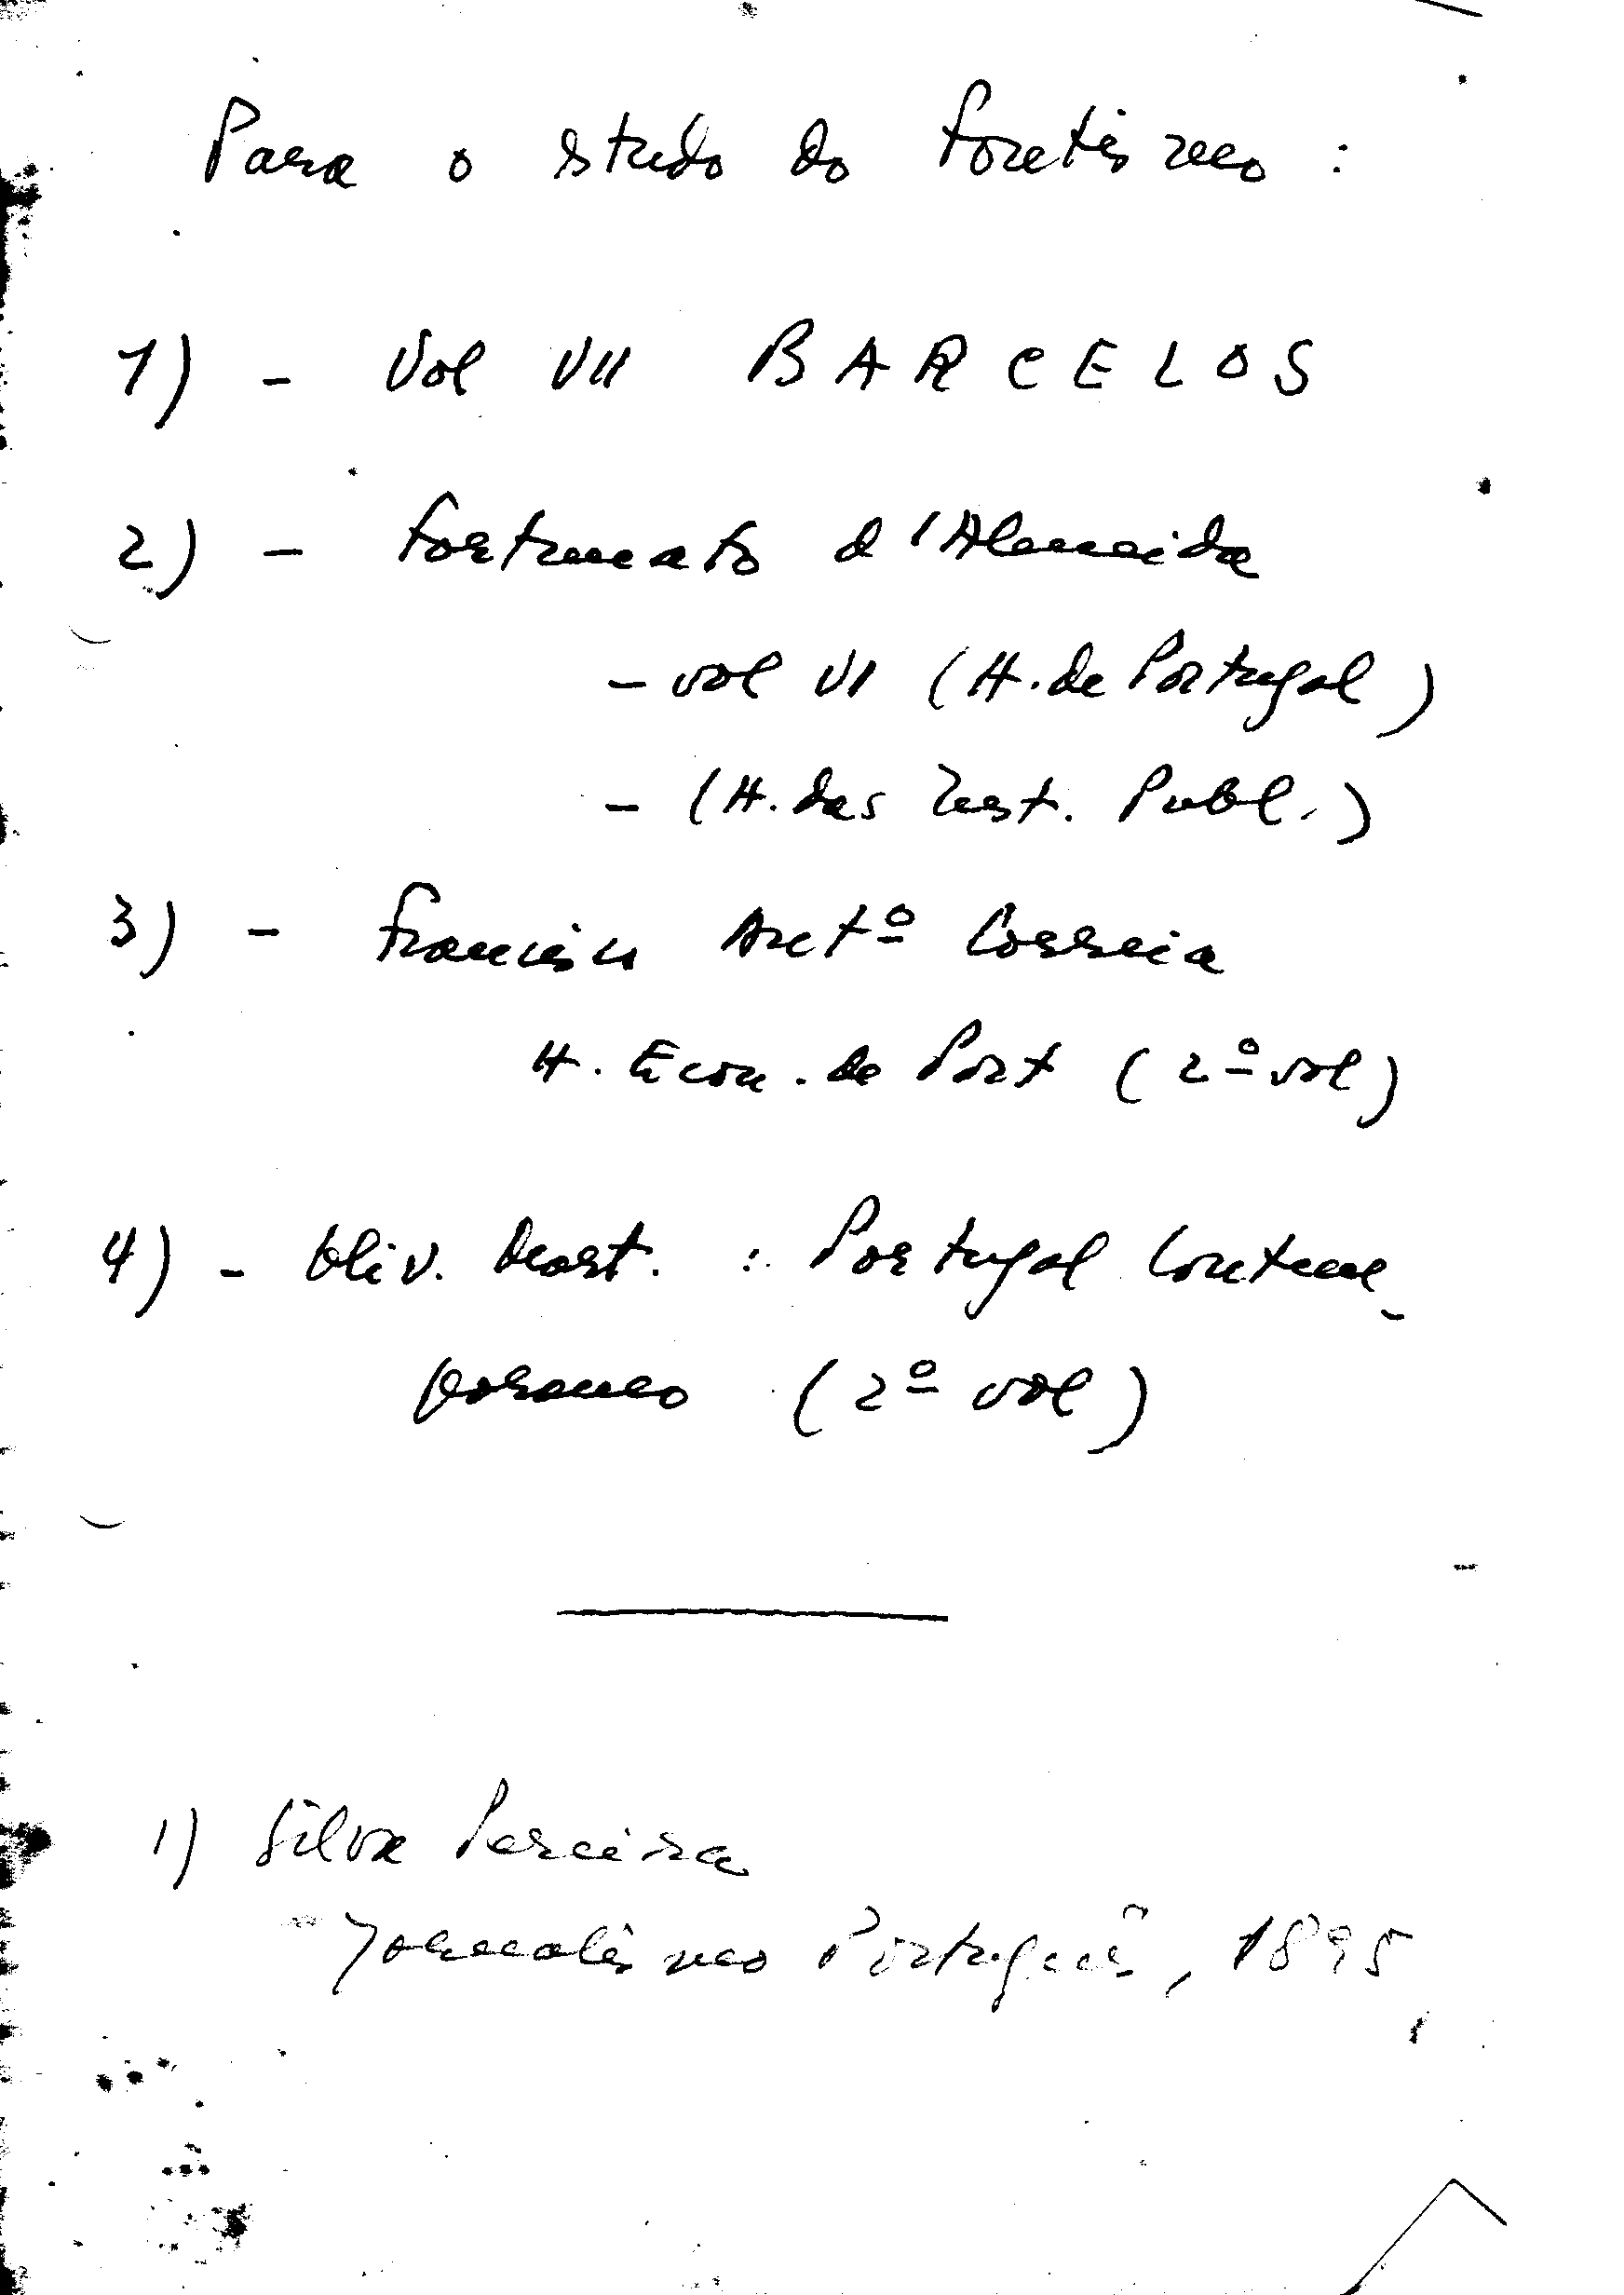 Para o estudo do Fontismo :
1) - Vol VII BARCELOS
2) - Fortunato d'Almeida
- vol VI (H. de Portugal)
- (H. das Inst. Publ.)
3) - Francisco Antº Correia
H. Econ. de Port (2º vol)
4) - Oliv. Mart. : Portugal Contem-
poraneo (2º vol)
1) Silva Pereira
Jornalismo Português, 1895